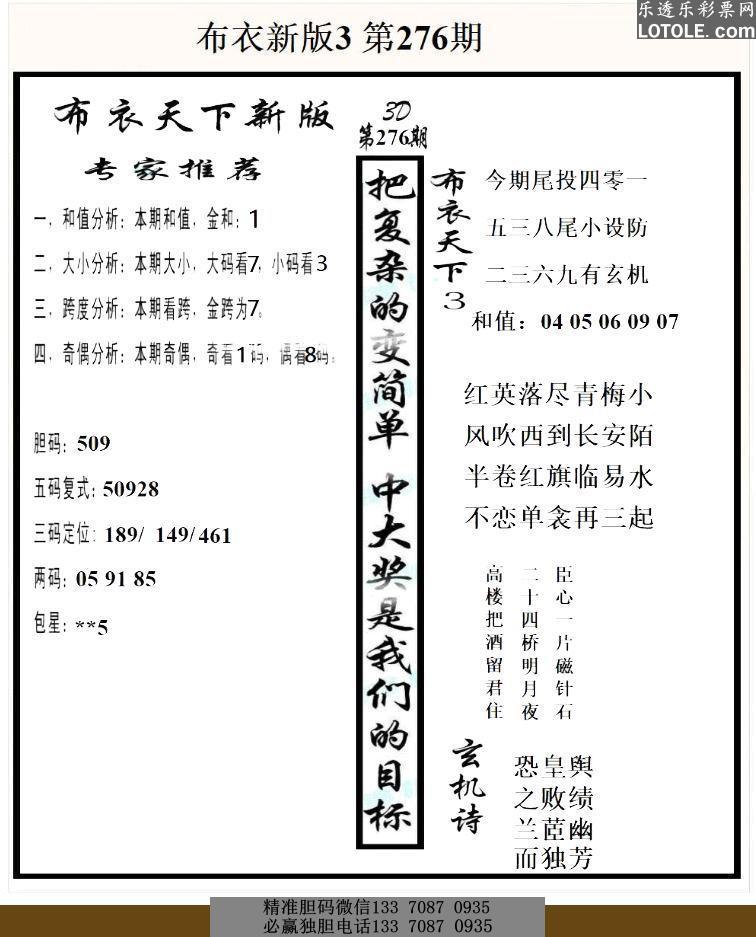 乐透乐彩票网
LOTOLE.com
布衣新版3 第276期
布衣天下新版
专家推荐
一，和值分析：本期和值，金和：1
二，大小分析：本期大小，大码看7，小码看3
三，跨度分析：本期看跨，金跨为7。
四，奇偶分析：本期奇偶，奇看1码，偶看8码。
胆码：509
五码复式：50928
三码定位：189/ 149/461
两码：05 91 85
包星：**5
3D
第276期
把复杂的变简单 中大奖是我们的目标
布衣天下3
今期尾投四零一
五三八尾小设防
二三六九有玄机
和值：04 05 06 09 07
红英落尽青梅小
风吹西到长安陌
半卷红旗临易水
不恋单衾再三起
臣心一片磁针石
二十四桥明月夜
高楼把酒留君住
玄机诗
恐皇舆
之败绩
兰茝幽
而独芳
精准胆码微信133 7087 0935
必赢独胆电话133 7087 0935